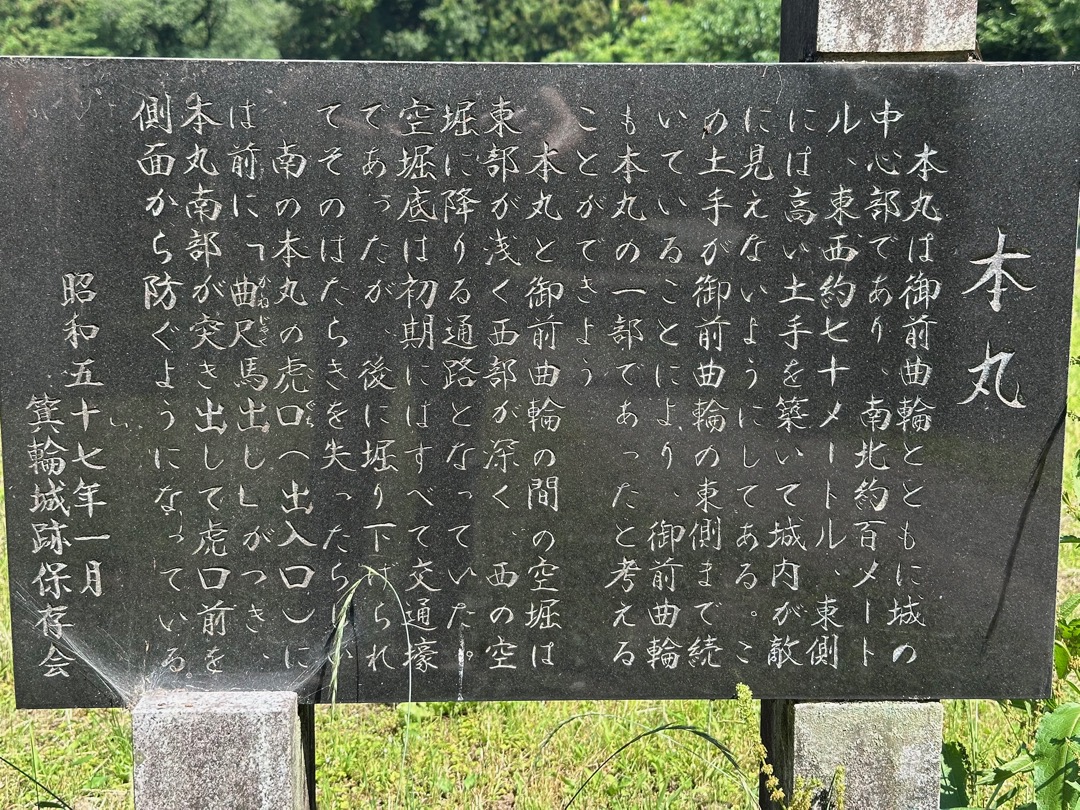 本丸
本丸は御前曲輪とともに城の
中心部であり、南北約百メート
ル、東西約七十メートル、東側
には高い土手を築いて城内が敵
に見えないようにしてある。こ
の土手が御前曲輪の東側まで続
いていることにより、御前曲輪
も本丸の一部であったと考える
ことができよう
本丸と御前曲輪の間の空堀は
東部が浅く西部が深く、西の空
堀に降りる通路となっていた。
空堀底は初期にはすべて交通壕
であったが、後に堀り下げられ
てそのはたらきを失ったらしい
南の本丸の虎口(出入口)に
は前に「曲尺馬出し」がつき、
本丸南部が突き出して虎口前を
側面から防ぐようになっている。
昭和五十七年一月
箕輪城跡保存会